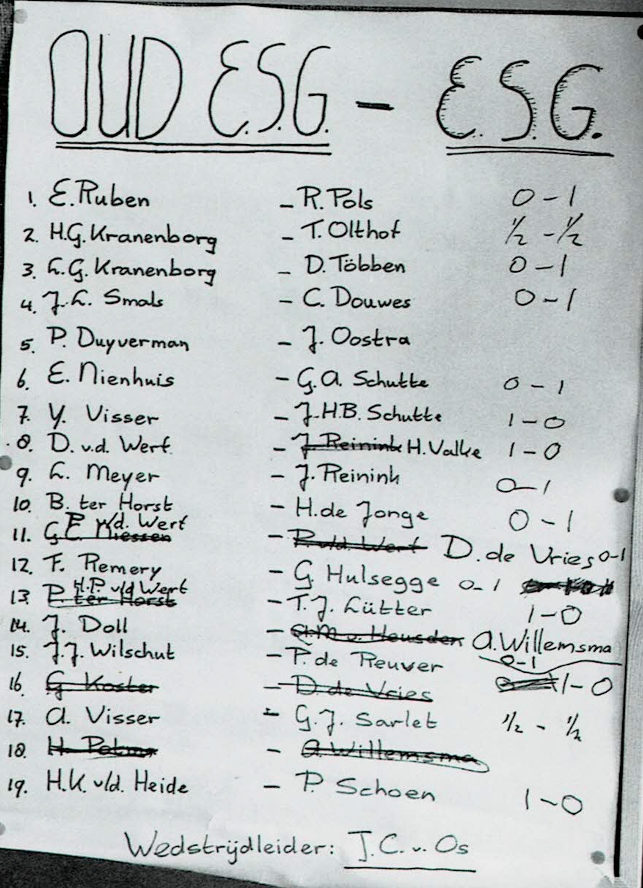 OUD E.S.G. - E.S.G.
1. E. Ruben - R. Pols 0-1
2. H.G. Kranenborg - T. Olthof ½-½
3. L.G. Kranenborg - D. Többen 0-1
4. J.L. Smals - C. Douwes 0-1
5. P. Duyverman - J. Oostra
6. E. Nienhuis - G.A. Schutte 0-1
7. Y. Visser - J.H.B. Schutte 1-0
8. D. v.d. Werf - J. Reinink H. Valke 1-0
9. L. Meyer - J. Reinink 0-1
10. B. ter Horst - H. de Jonge 0-1
11. G. Niessen P. v/d. Wert - P. v/d. Werf D. de Vries 0-1
12. F. Remery - G Hulsegge 0-1
13. P. ter Horst H.P. v/d Wert - T.J. Lütter 1-0
14. J. Doll - A.M. v. Heusden A. Willemsma
15. J.J. Wilschut - P. de Reuver 0-1
16. G. Koster - D. de Vries 1-0
17. A. Visser - G.J. Sarlet ½-½
18. H. Polma - A. Willemsma
19. H.K. v/d. Heide - P. Schoen 1-0
Wedstrijdleider: J.C. v. Os